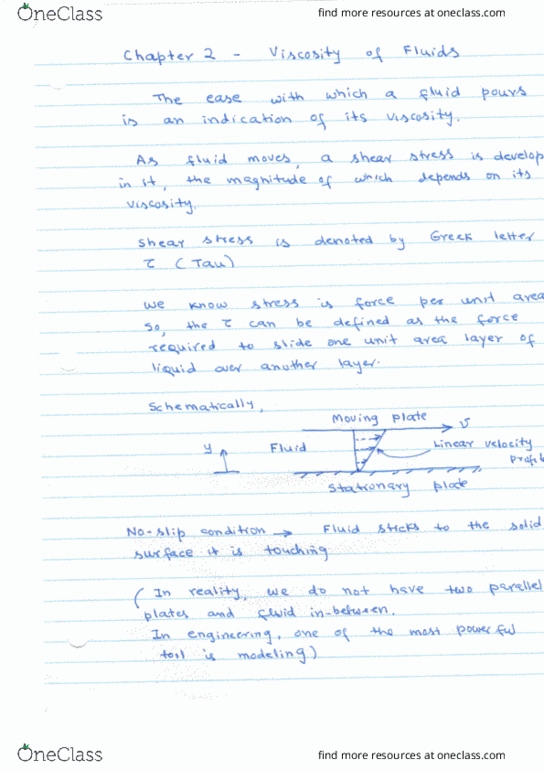 OneClass find more resources at oneclass.com
Chapter 2 - Viscosity of Fluids
The ease with which a fluid pours
is an indication of its viscosity.
As fluid moves, a shear stress is develop
in it, the magnitude of which depends on its
viscosity.
Shear stress is denoted by Greek letter
τ (Tau)
We know stress is force per unit area
So, the τ can be defined as the force
required to slide one unit area layer of
liquid over another layer.
Schematically,
Moving plate v
y Fluid Linear velocity
profil
Stationary plate
No-slip condition → Fluid sticks to the solid
surface it is touching
(In reality, we do not have two parallel
plates and fluid in-between.
In engineering, one of the most powerful
tool is modeling)
OneClass find more resources at oneclass.com